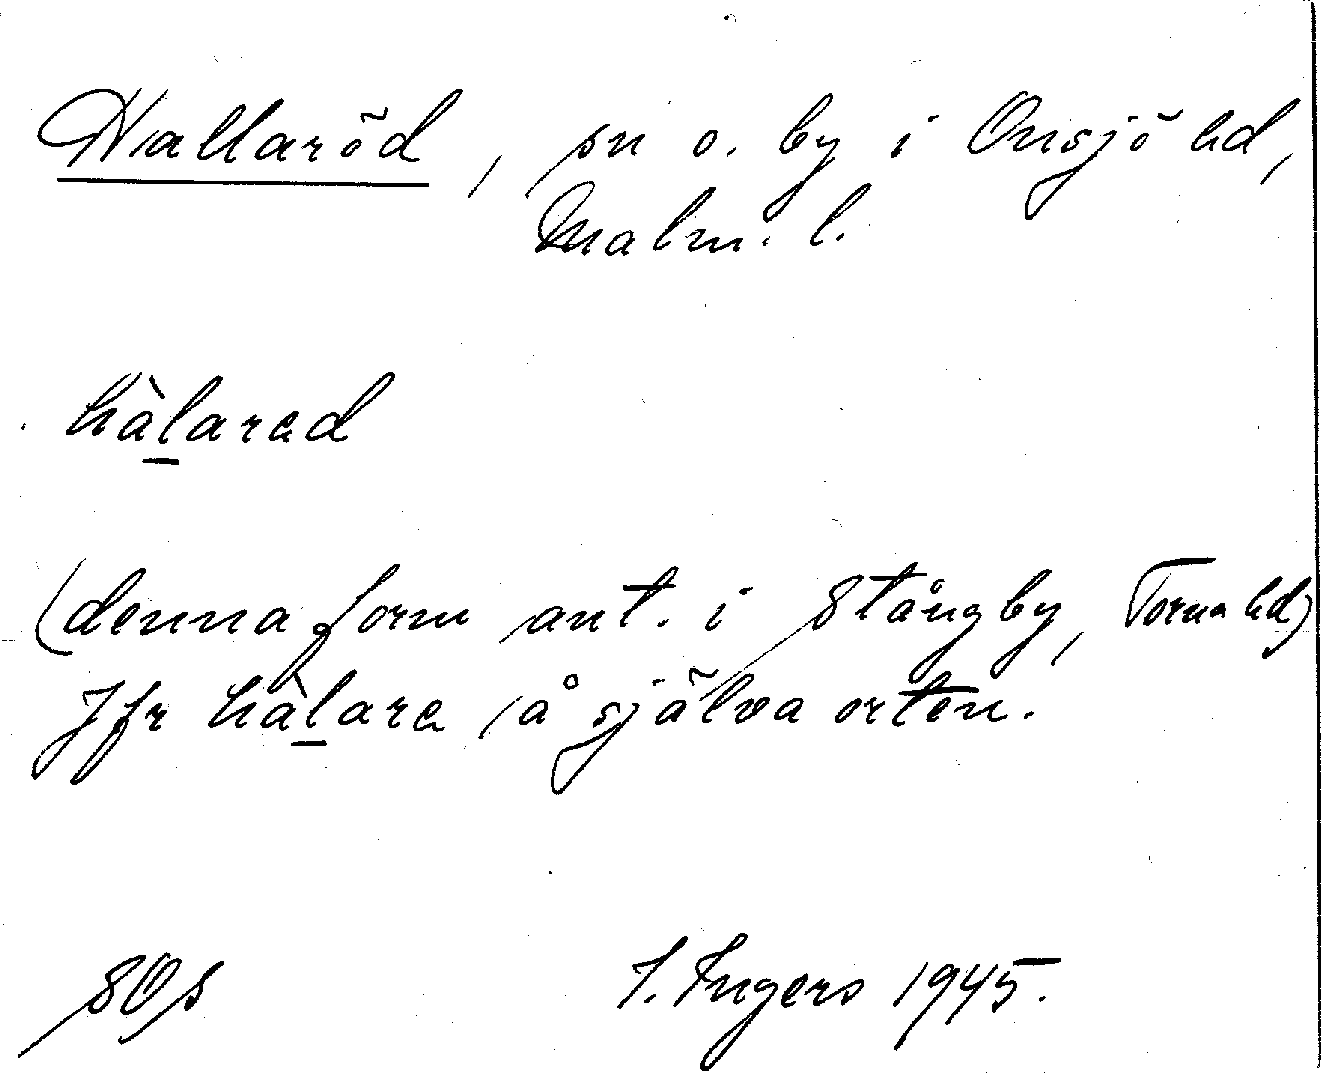 Hallaröd, sn o. by i Onsjö hd,
Malm. l.
hàl̲arad
(denna form ant. i Stångby, Torna hd)
Jfr hàl̲ara på själva orten.
SOS I. Ingers 1945.